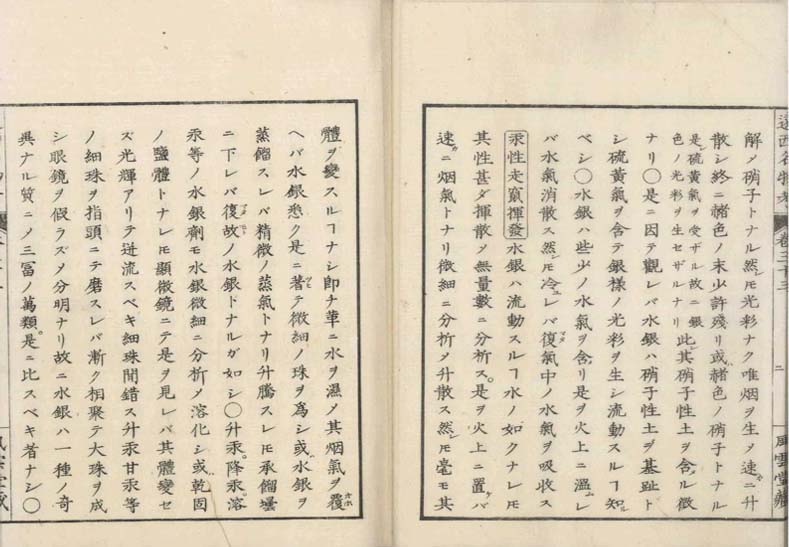 解〆硝子トナル然𪜈光彩ナク唯烟ヲ生〆速ニ升
散シ終ニ赭色ノ末少許殘リ或赭色ノ硝子トナル
是レ硫黄氣ヲ受ザル故ニ銀
色ノ光彩ヲ生セザルナリ
此其硝子性土ヲ含ル徴
ナリ○是ニ因テ觀レバ水銀ハ硝子性土ヲ基趾ト
シ硫黄氣ヲ含テ銀樣ノ光彩ヲ生シ流動スルヿ知
ベシ○水銀ハ些少ノ水氣ヲ含リ是ヲ火上ニ溫レ
バ水氣消散ス然𪜈冷レバ復氣中ノ水氣ヲ吸收ス
汞性走竄揮發 水銀ハ流動スルヿ水ノ如クナレ𪜈
其性甚ダ揮散〆無量數ニ分析ス是ヲ火上ニ置バ
速ニ烟氣トナリ微細ニ分析〆升散ス然𪜈毫モ其
二
風雲堂藏
體ヲ變スルヿナシ即チ革ニ水ヲ濕〆其烟氣ヲ覆
ヘバ水銀悉ク是ニ著テ微細ノ珠ヲ爲シ或水銀ヲ
蒸餾スレバ精微ノ蒸氣トナリ升騰スレ𪜈承餾壜
ニ下レバ復故ノ水銀トナルガ如シ○升汞降汞溶
汞等ノ水銀劑モ水銀微細ニ分析〆溶化シ或乾固
ノ鹽體トナレ𪜈顯微鏡ニテ是ヲ見レバ其體變セ
ズ光輝アリテ迸流スベキ細珠間錯ス升汞甘汞等
ノ細珠ヲ指頭ニテ磨スレバ漸ク相聚テ大珠ヲ成
シ眼鏡ヲ假ラズ〆分明ナリ故ニ水銀ハ一種ノ奇
異ナル質ニ〆三冨ノ萬類是ニ比スベキ者ナシ○